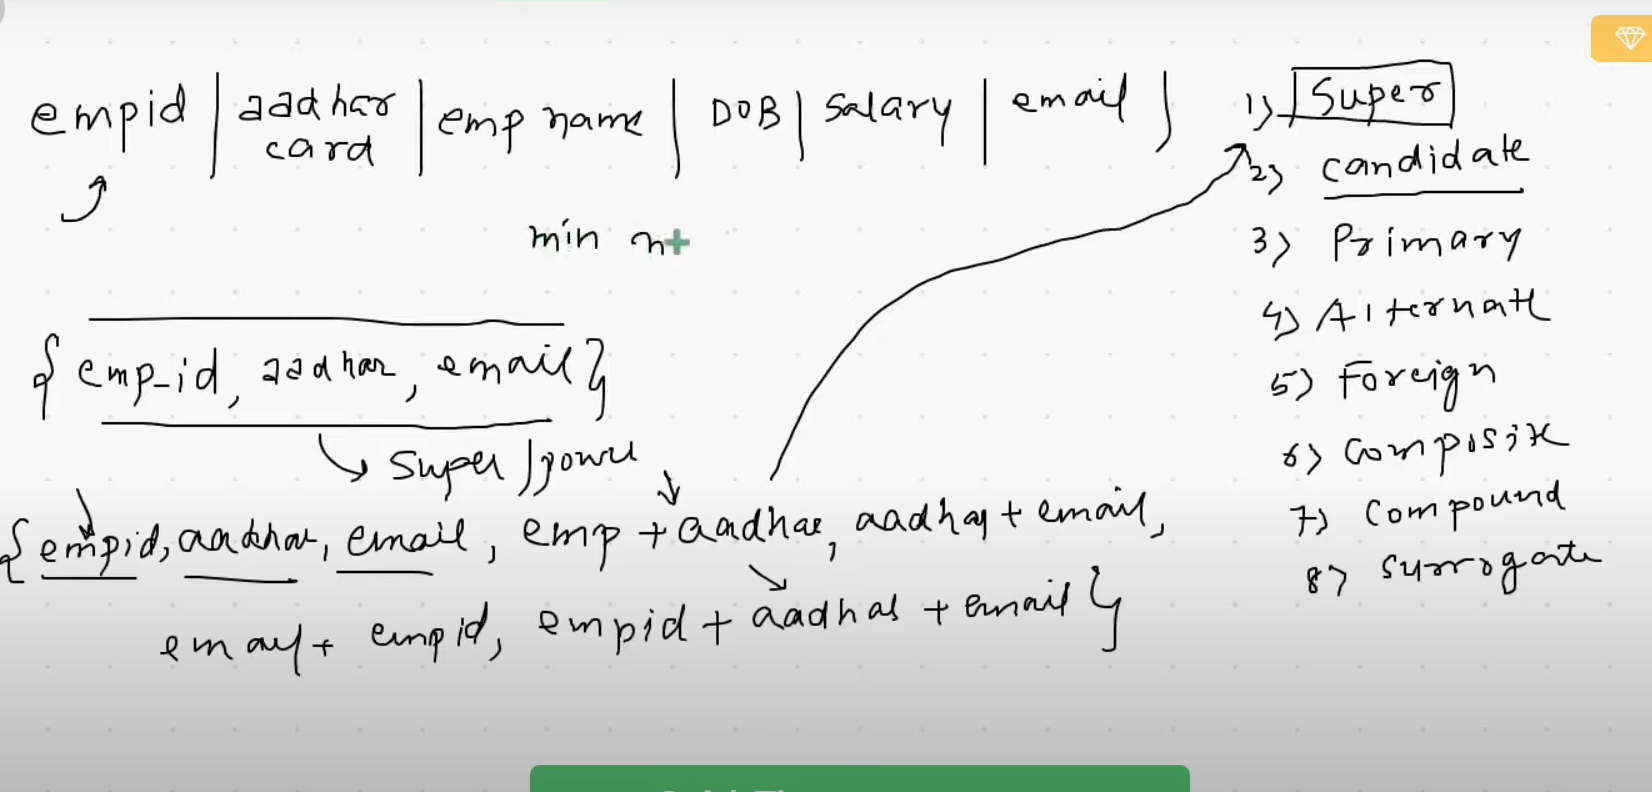 empid | aadhar card | emp name | DOB | salary | email |
min n
{ emp_id, aadhar, email }
super / power
{ empid, aadhar, email, emp + aadhar, aadhar + email,
email + empid, empid + aadhar + email }
1) Super
2) candidate
3) Primary
4) Alternate
5) Foreign
6) Composite
7) Compound
8) Surrogate